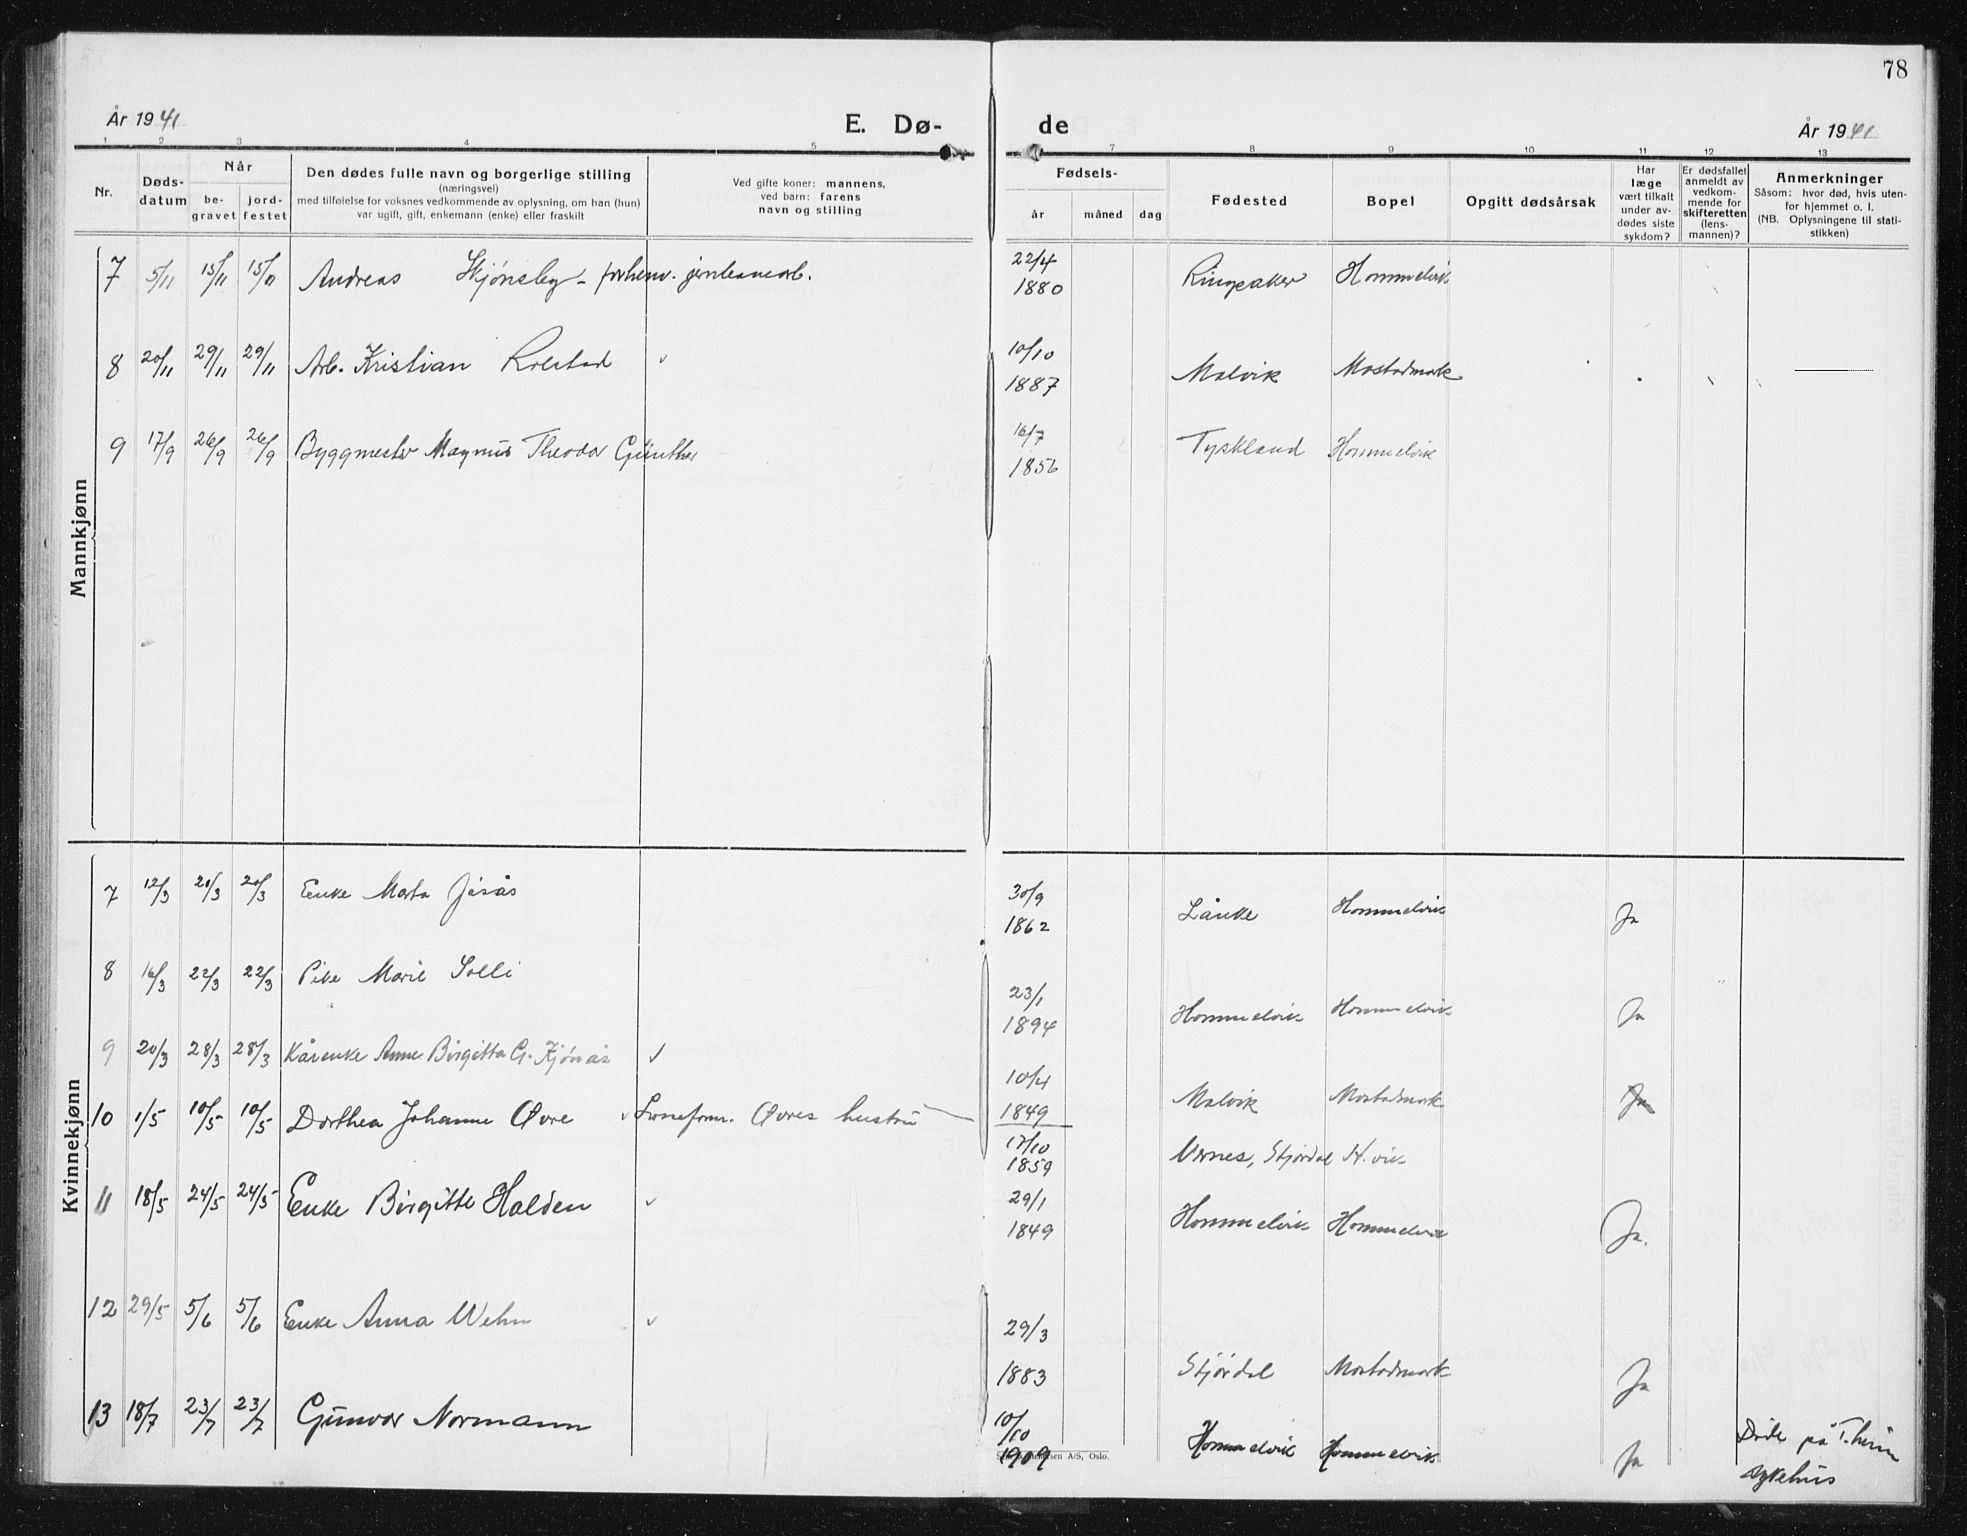 78
År 1941
E. Dø-
de
År 1941
1 2 3 4 5 7 8 9 10 11 12 13
Nr.
Døds-
datum
Når
be-
gravet
jord-
festet
Den dødes fulle navn og borgerlige stilling
(næringsvei)
med tilføielse for voksnes vedkommende av oplysning, om han (hun)
var ugift, gift, enkemann (enke) eller fraskilt
Ved gifte koner: mannens,
ved barn: farens
navn og stilling
Fødsels-
år måned dag
Fødested
Bopel
Opgitt dødsårsak
Har
læge
vært tilkalt
under av-
dødes siste
sykdom?
Er dødsfallet
anmeldt av
vedkom-
mende for
skifteretten
(lens-
mannen)?
Anmerkninger
Såsom: hvor død, hvis uten-
for hjemmet o. l.
(NB. Oplysningene til stati-
stikken)
Mannkjønn
7 5/11 15/11 15/11 Andreas Skjønsby - forhenv. jernbanearb. 22/4 1880 Ringsaker Hommelvik
8 20/11 29/11 29/11 Arb. Kristian Rolstad 10/10 1887 Malvik Mostadmark
9 17/9 26/9 26/9 Byggmester Magnus Theodor Günther 16/7 1856 Tyskland Hommelvik
Kvinnekjønn
7 12/3 20/3 20/3 Enke Marta 30/9 1862 Lånke Hommelvik Ja
8 16/3 22/3 22/3 Pike Marie Solli 23/1 1894 Hommelvik Hommelvik Ja
9 20/3 28/3 28/3 Kårenke Anne Birgitta G. Kjønås 10/4 1849 Malvik Mostadmark Ja
10 1/5 10/5 10/5 Dorthea Johanne Øvre Øvres hustru 17/10 1859 Værnes, Stjørdal H.vik
11 18/5 24/5 24/5 Enke Birgitte Halden 29/1 1849 Hommelvik Hommelvik Ja.
12 29/5 5/6 5/6 Enke Anna Wehn 29/3 1883 Stjørdal Mostadmark Ja
13 18/7 23/7 23/7 Gunvor Normann 10/10 1909 Hommelvik Hommelvik Ja Døde på T.heim
sykehus
A/S, Oslo.